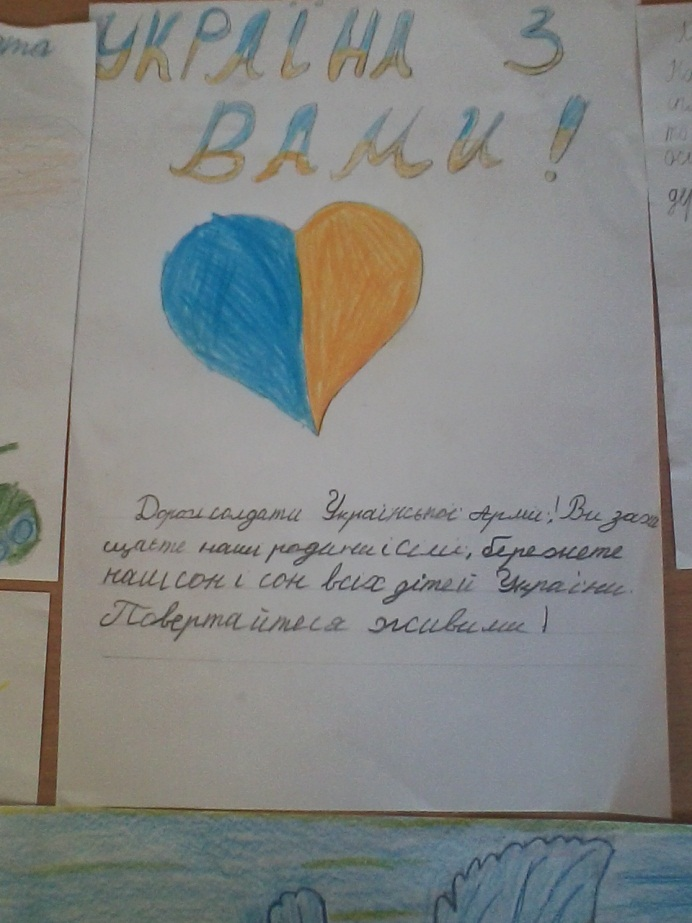 УКРАЇНА З
ВАМИ!
Дорогі солдати Української Армії! Ви захи
щаєте наші родини і сімї, бережете
наш сон і сон всіх дітей України.
Повертайтеся живими!